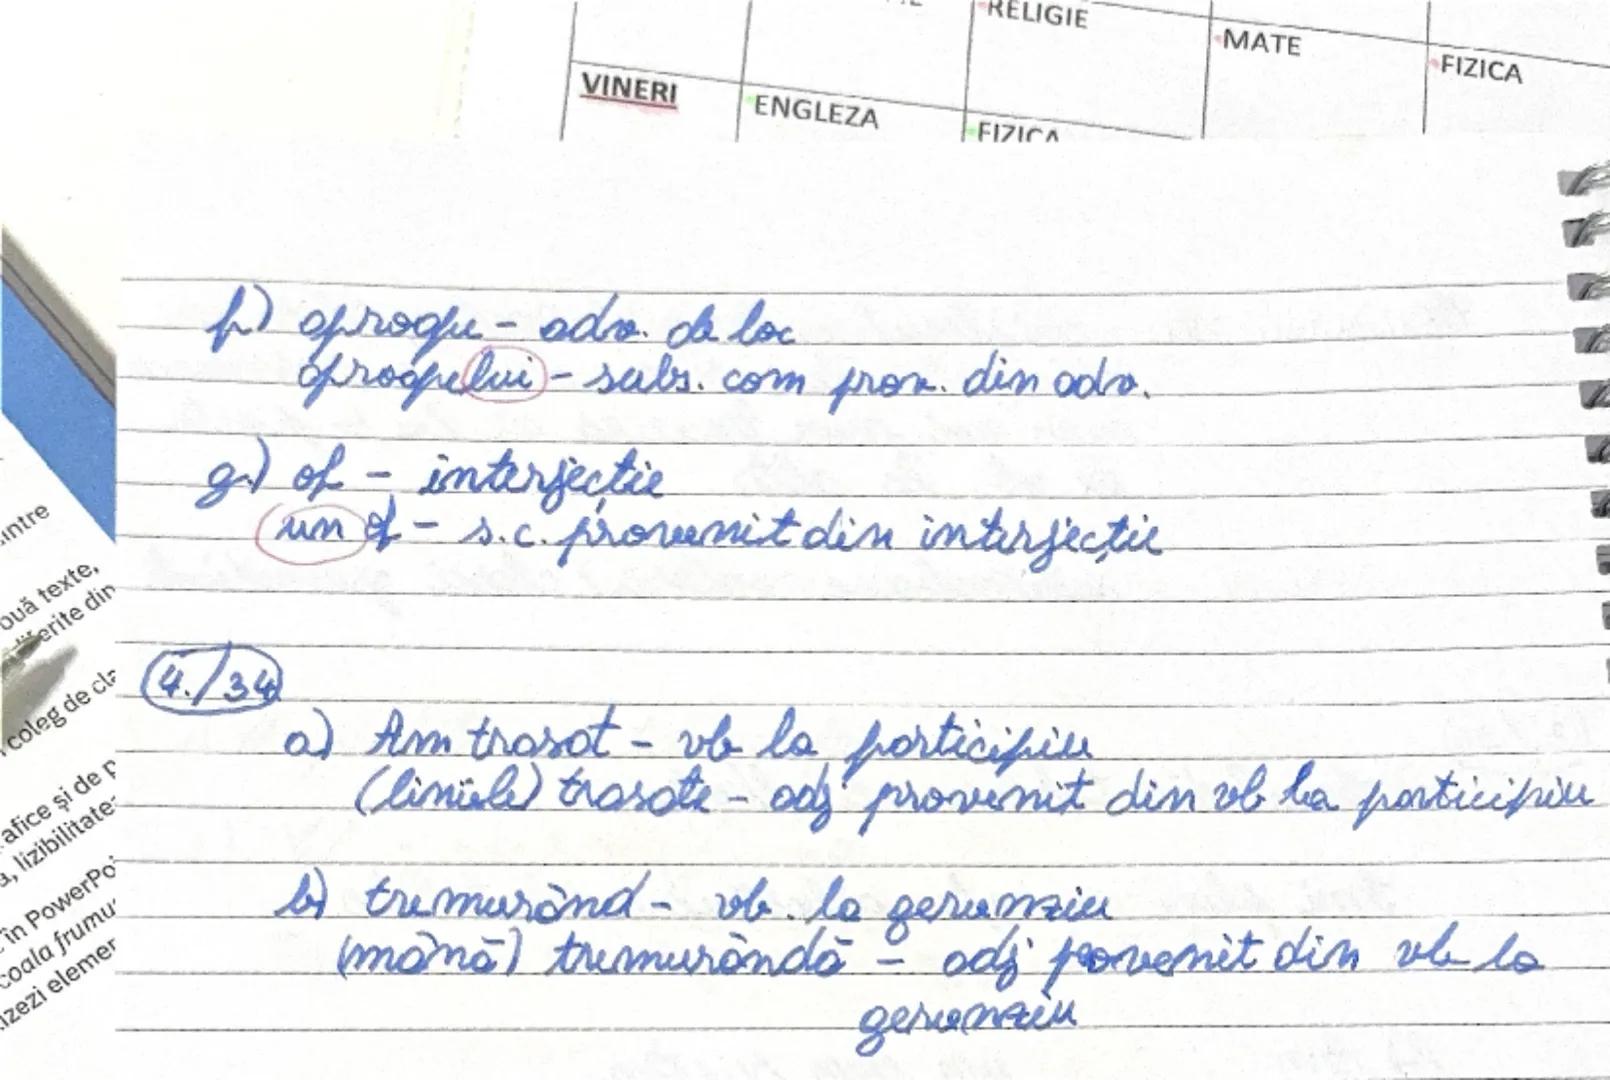 RELIGIE
MATE
FIZICA
VINERI
ENGLEZA
FIZICA
f) aproape - adv. de loc
aproapelui - subs. com prov. din adv.
g.) of - interjecție
un of - s.c. provenit din interjecție
4./34
a) Am trasat - vb la participiu
(liniile) trasate - adj provenit din vb la participiu
b) tremurând - vb. la gerunziu
(mână) tremurândă - adj provenit din vb la
gerunziu
intre
ouă texte,
erite din
coleg de cla
afice și de p
, lizibilitate
în PowerPo
coala frumu
zezi elemen